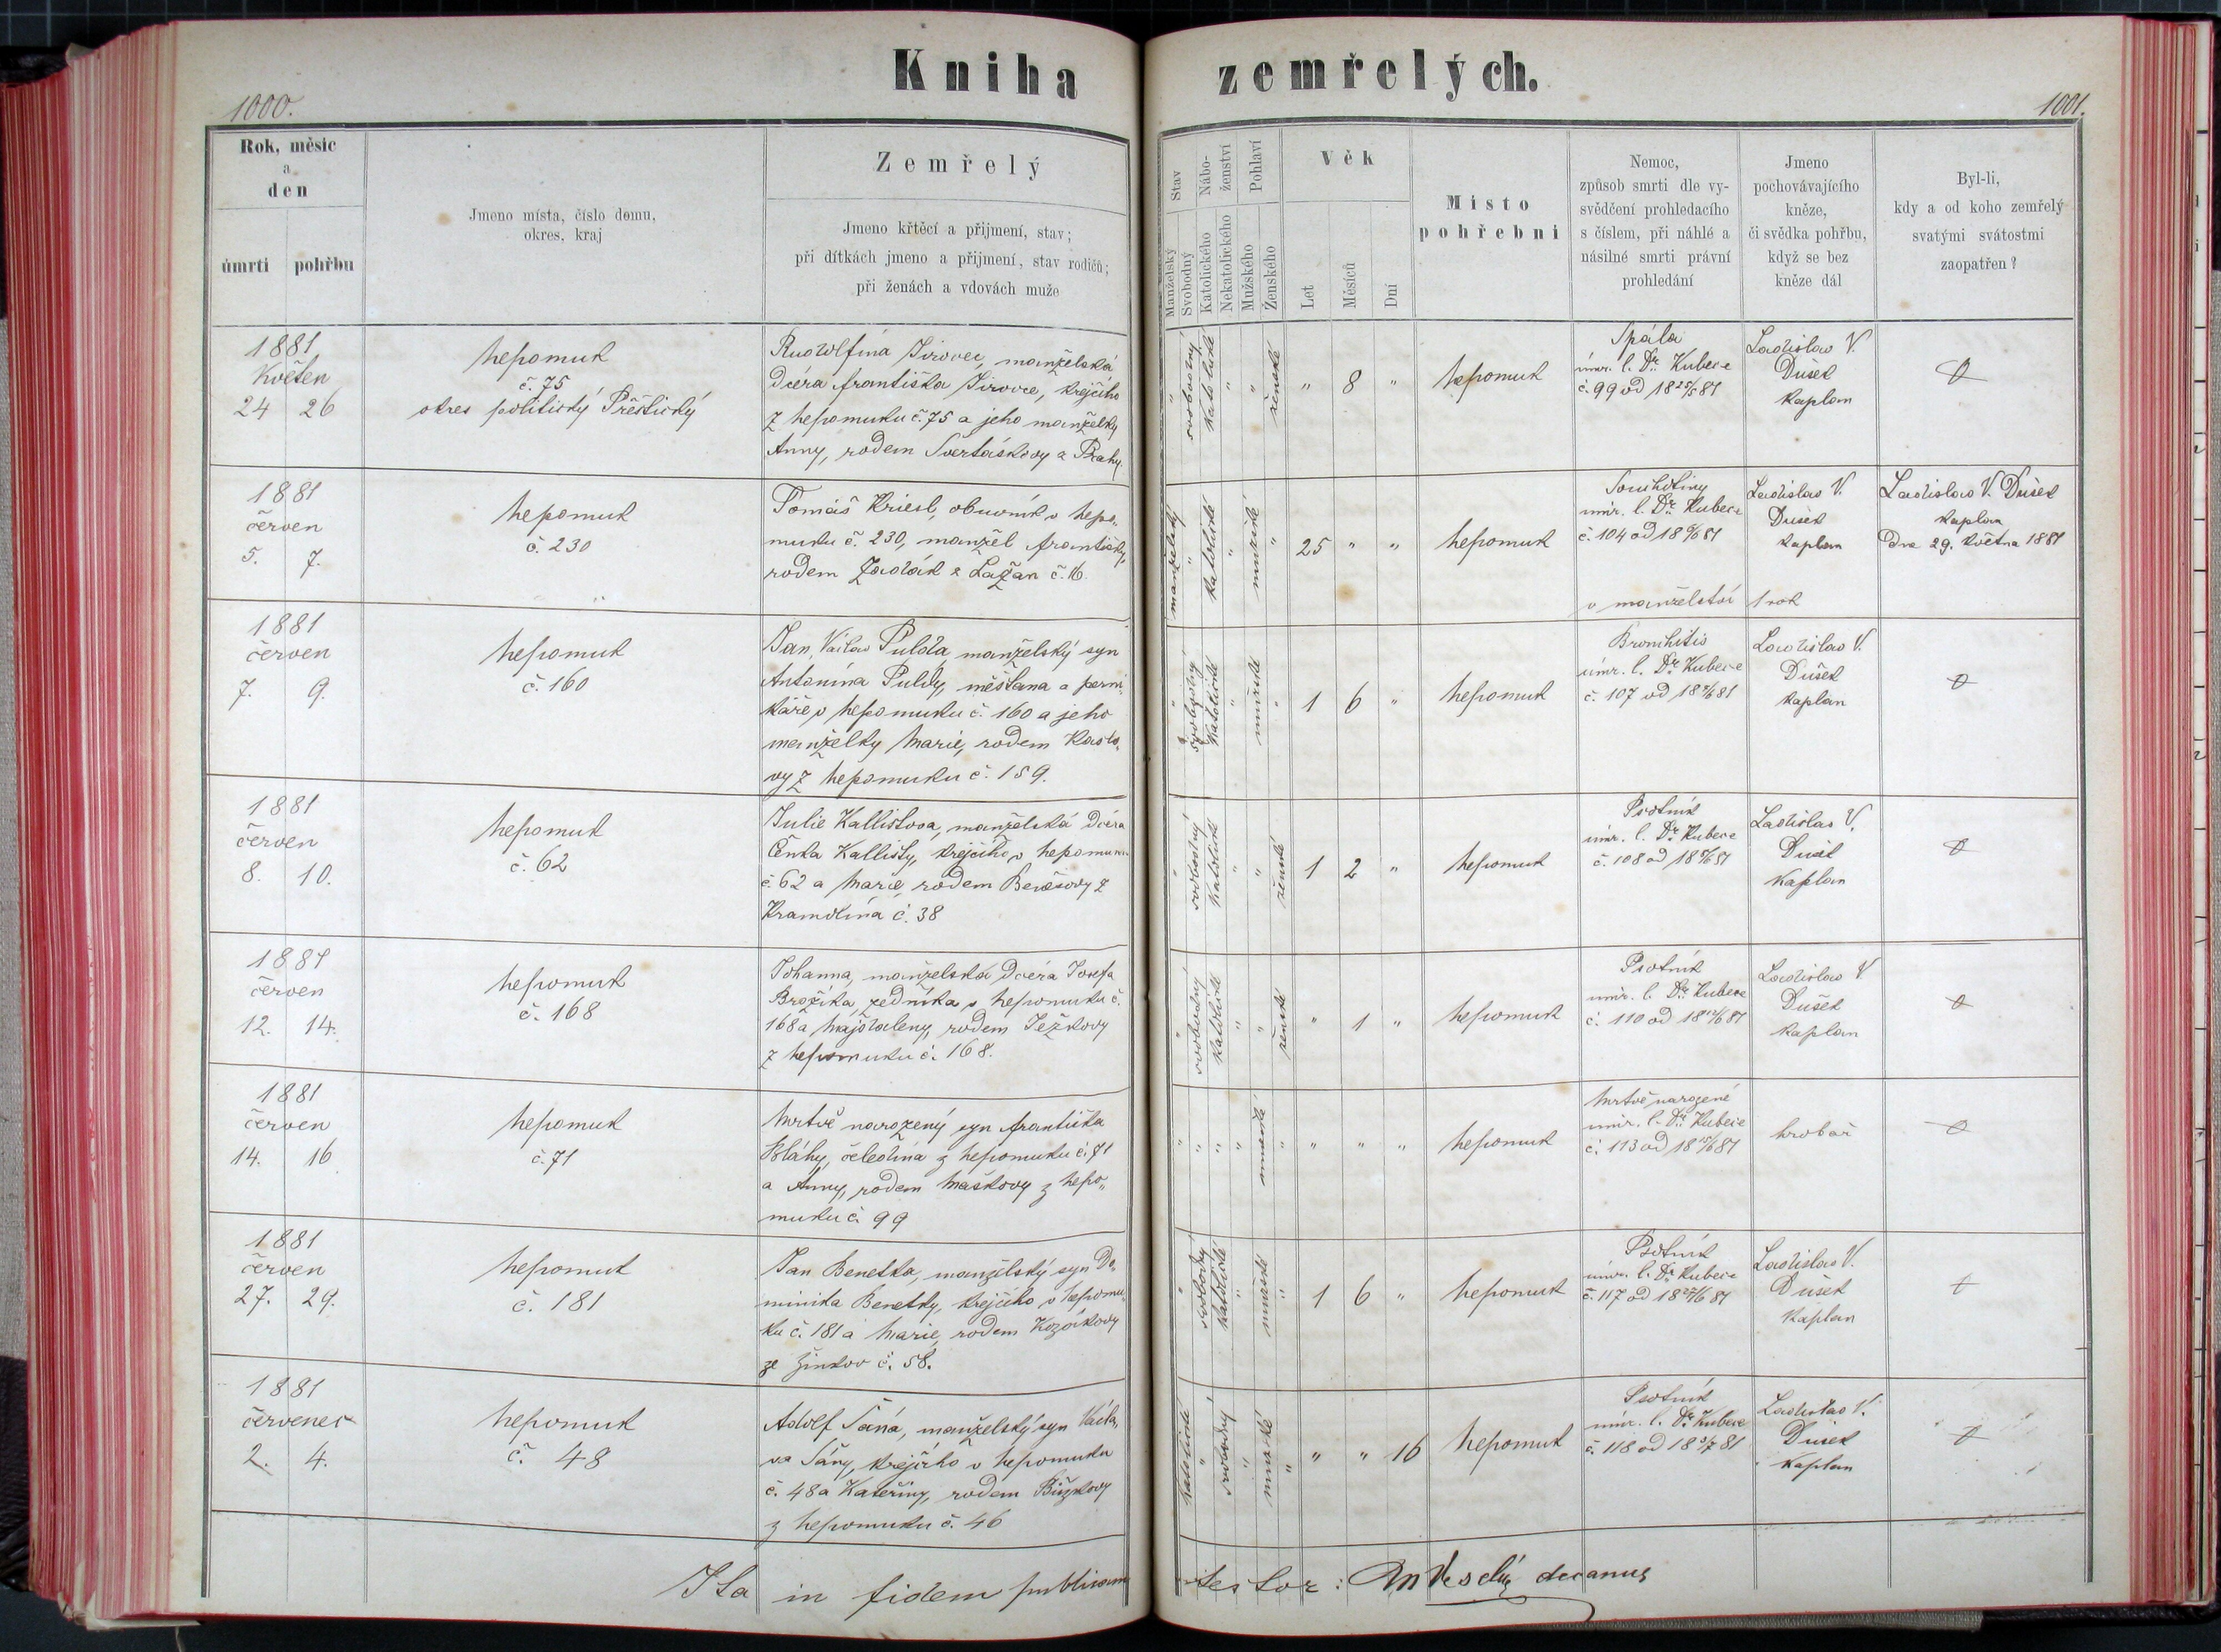 Kniha zemřelých.
1000.
1001.
Rok, měsíc
a
den
úmrtí
pohřbu
Jmeno místa, číslo domu,
okres, kraj
Zemřelý
Jmeno křtěcí a přijmení, stav;
při dítkách jmeno a přijmení, stav rodičů;
při ženách a vdovách muže
Stav
Manželský
Svobodný
Nábo-
ženství
Katolického
Nekatolického
Pohlaví
Mužského
Ženského
Věk
Let
Měsíců
Dní
Místo
pohřební
Nemoc,
způsob smrti dle vy-
svědčení prohledacího
s číslem, při náhlé a
násilné smrti právní
prohledání
Jmeno
pochovávajícího
kněze,
či svědka pohřbu,
když se bez
kněze dál
Byl-li,
kdy a od koho zemřelý
svatými svátostmi
zaopatřen?
1881
Květen
24 26
Nepomuk
č. 75
okres politický Přeštický
Rudolfina Jirovec, manželská
dcera Františka Jirovce, krejčího
z Nepomuku č. 75 a jeho manželky
Anny, rodem z Prahy.
"
svobodný
katolické
"
"
ženské
" 8 "
Nepomuk
Spála
úmr. l. Dr. Kubece
č. 99 od 18 25/5 81
Ladislav V.
Dušek
kaplan
1881
červen
5. 7.
Nepomuk
č. 230
Tomáš Kriesl, obuvník v Nepo-
muku č. 230, manžel Františky,
rodem Zadák z Lažan č. 16.
manželský
"
katolické
"
mužské
"
25 " "
Nepomuk
Souchotiny
úmr. l. Dr. Kubece
č. 104 od 18 6/6 81
v manželství 1 rok
Ladislav V.
Dušek
kaplan
Ladislav V. Dušek
kaplan
dne 29. května 1881
1881
červen
7. 9.
Nepomuk
č. 160
Jan, Václav Pulda manželský syn
Antonína Puldy, měšťana a perní-
káře v Nepomuku č. 160 a jeho
manželky Marie, rodem
vy z Nepomuku č. 159.
"
svobodný
katolické
"
mužské
"
1 6 "
Nepomuk
Bronchitis
úmr. l. Dr. Kubece
č. 107 od 18 8/6 81
Ladislav V.
Dušek
kaplan
1881
červen
8. 10.
Nepomuk
č. 62
Julie Kallistova, manželská dcera
Čeňka Kallisty, krejčího v Nepomuku
č. 62 a Marie, rodem Benešovy z
Kramolína č. 38
"
svobodný
katolické
"
"
ženské
1 2 "
Nepomuk
Psotník
úmr. l. Dr. Kubece
č. 108 od 18 9/6 81
Ladislav V.
Dušek
kaplan
1881
červen
12. 14.
Nepomuk
č. 168
Johanna, manželská dcera Josefa
Brožíka, zedníka v Nepomuku č.
168 a Majdaleny, rodem Ježkovy
z Nepomuku č. 168.
"
svobodný
katolické
"
"
ženské
" 1 "
Nepomuk
Psotník
úmr. l. Dr. Kubece
č. 110 od 18 12/6 81
Ladislav V
Dušek
kaplan
1881
červen
14. 16
Nepomuk
č. 71
Mrtvě narozený syn Františka
Bláhy, čeledína z Nepomuku č. 71
a Anny, rodem Maškovy z Nepo-
muku č. 99
"
"
"
"
mužské
"
" " "
Nepomuk
Mrtvě narozené
úmr. l. Dr. Kubece
č. 113 od 18 15/6 81
hrobař
1881
červen
27. 29.
Nepomuk
č. 181
Jan Benetka, manželský syn Do-
minika Benetky, krejčího v Nepomu-
ku č. 181 a Marie, rodem Kozákovy
ze Žinkov č. 58.
"
svobodný
katolické
"
mužské
"
1 6 "
Nepomuk
Psotník
úmr. l. Dr. Kubece
č. 117 od 18 27/6 81
Ladislav V.
Dušek
kaplan
1881
červenec
2. 4.
Nepomuk
č. 48
Adolf Šána, manželský syn Václa-
va Šány, krejčího v Nepomuku
č. 48 a Kateřiny, rodem
z Nepomuku č. 46
katolické
"
svobodný
"
mužské
"
" " 16
Nepomuk
Psotník
úmr. l. Dr. Kubece
č. 118 od 18 3/7 81
Ladislav V.
Dušek
kaplan
Ita in fidem publicam testor: Veselý decanus